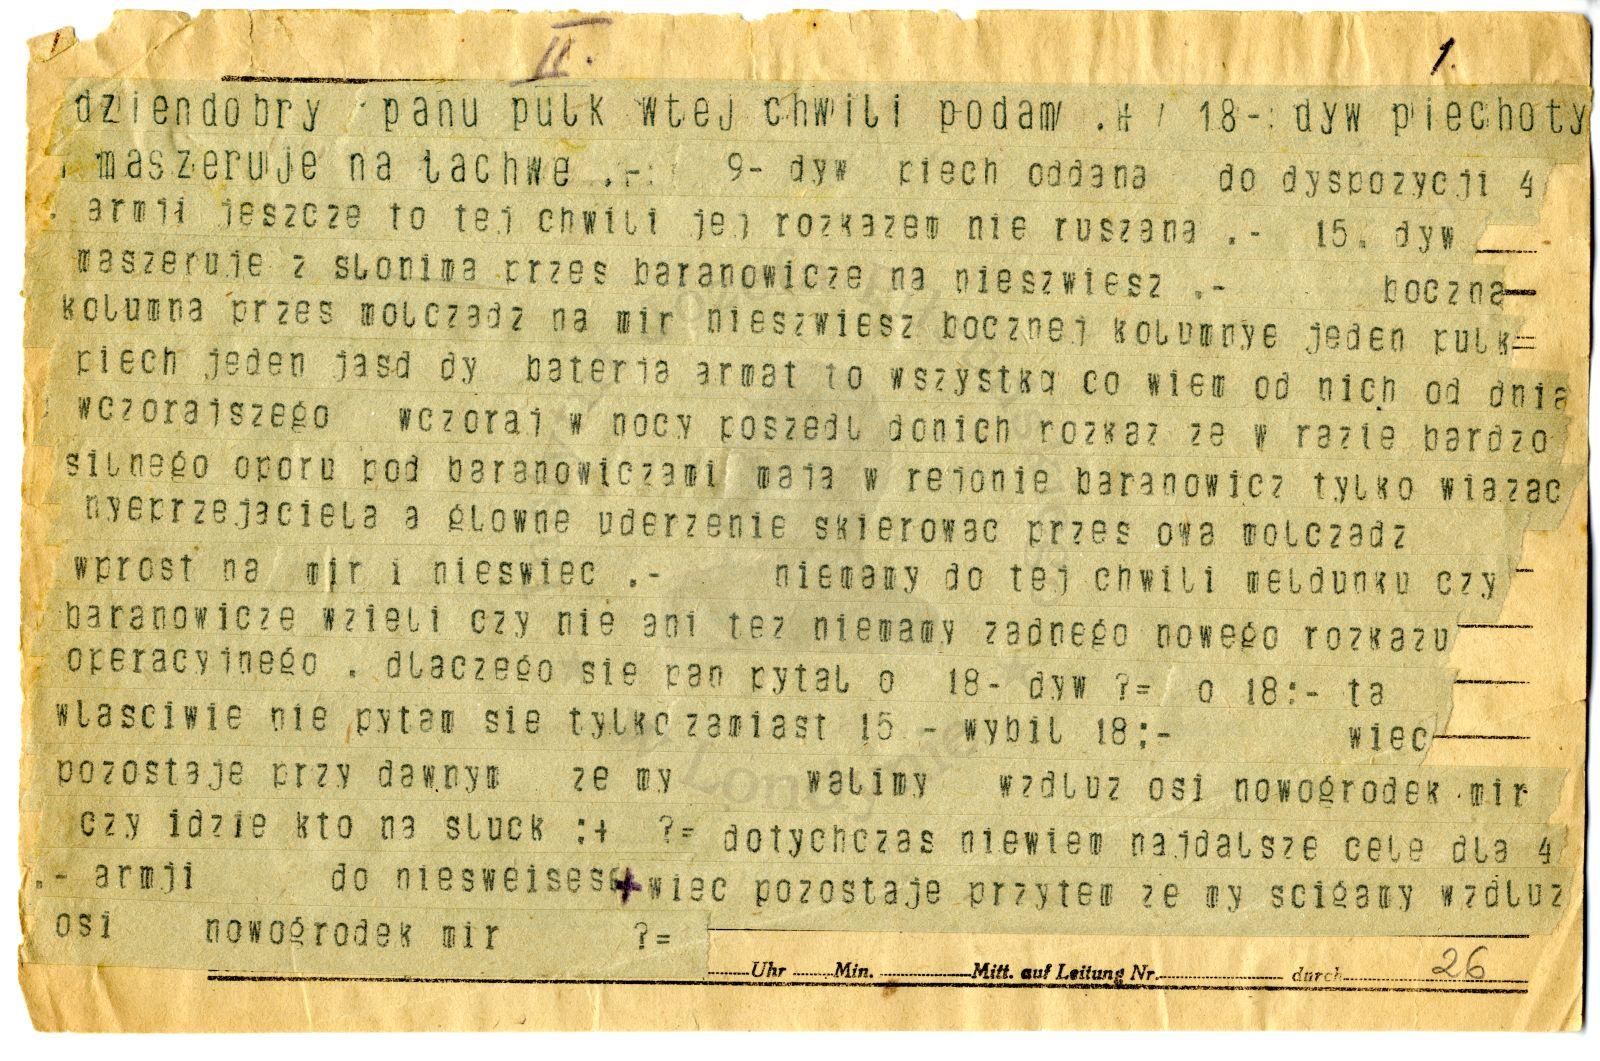 II.
1.
dziendobry panu pułk wtej chwili podam .+ / 18-: dyw piechoty
maszeruje na łachwe .-: 9- dyw piech oddana do dyspozycji 4
. armji jeszcze to tej chwili jej rozkazem nie ruszana .- 15. dyw
maszeruje z słonima przes baranowicze na nieszwiesz .- boczna
kolumna przes mołczadz na mir nieszwiesz bocznej kolumnye jeden pułk=
piech jeden jasd dy baterja armat to wszystko co wiem od nich od dnia
wczorajszego wczoraj w nocy poszedł donich rozkaz ze w razie bardzo
silnego oporu pod baranowiczami maja w rejonie baranowicz tylko wiazac
nyeprzejaciela a głowne uderzenie skierowac przes owa mołczadz
wprost na mir i nieswiec .- niemamy do tej chwili meldunku czy
baranowicze wzieli czy nie ani tez niemamy zadnego nowego rozkazu
operacyjnego . dlaczego sie pan pytał o 18- dyw ?= o 18:- ta
własciwie nie pytam sie tylko zamiast 15 - wybił 18:- wiec
pozostaje przy dawnym ze my walimy wzdłuz osi nowogrodek mir
czy idzie kto na słuck :+ ?= dotychczas niewiem najdalsze cele dla 4
.- armji do niesweises + wiec pozostaje przytem ze my scigamy wzdłuz
osi nowogrodek mir ?=
Uhr Min. Mitt. auf Leitung Nr. durch 26